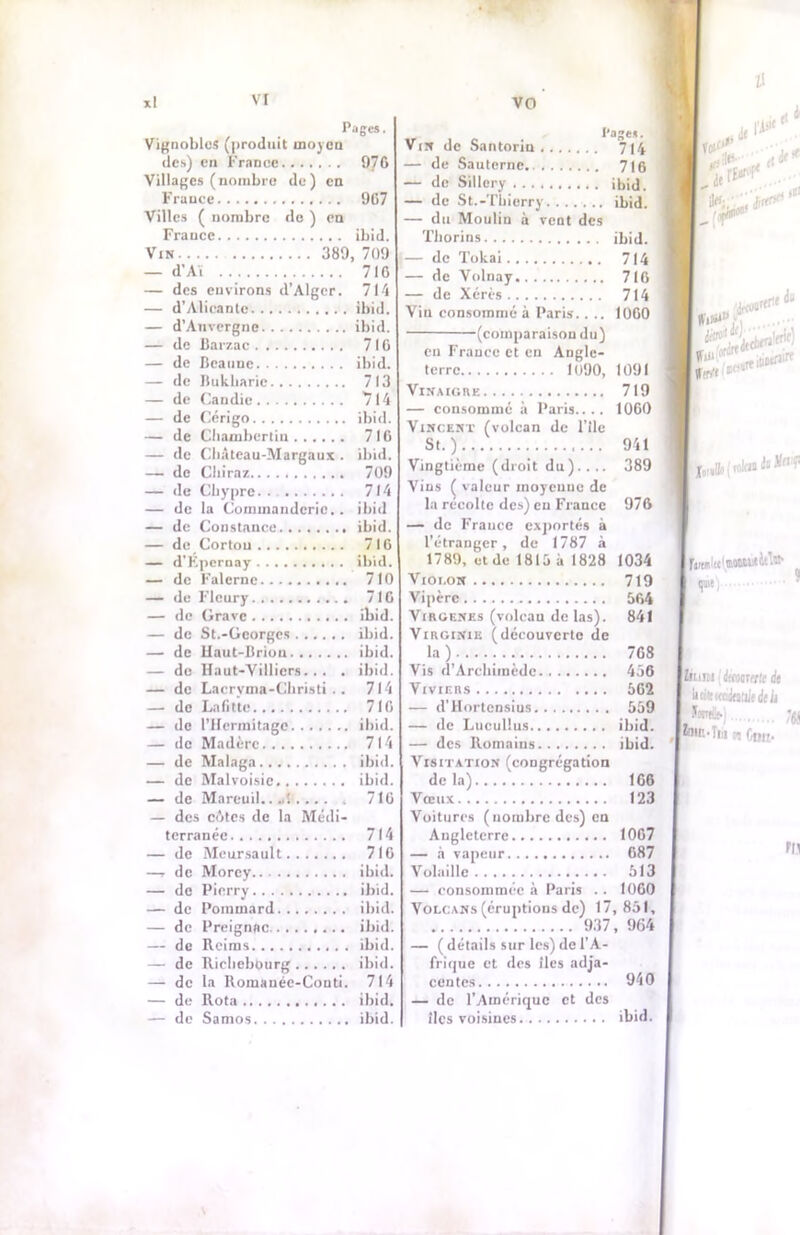 xl VI
Pages.
Vignobles (produit moyen
des) en France....... 976
Villages (nombre de) en
France............. 967
Villes ( nombre de ) en
France............. ibid.
VIN............... 389, 709
— d'Aï ............. 716
— des environs d'Alger. 714
— d'Alicante.......... ibid.
— d'Auvergne......... ibid.
— de Barzac.......... 716
— de Beaune.......... ibid.
— de Bukharie......... 713
— de Candie.......... 714
— de Cérigo........... ibid.
— de Chambertin...... 716
— de Château-Margaux. ibid.
— de Chiraz........... 709
— de Chypre.......... 714
— de la Commanderie.. ibid
— de Constance........ ibid.
— de Corton.......... 716
— d'Épernay.......... ibid.
— de Falerne.......... 710
— de Fleury........... 716
— de Grave........... ibid.
— de St.-Georges...... ibid.
— de Haut-Brion....... ibid.
— de Haut-Villiers.... ibid.
— de Lacryma-Christi.. 714
— de Lafitte........... 716
— de l'Hermitage....... ibid.
— de Madère.......... 714
— de Malaga.......... ibid.
— de Malvoisie........ ibid.
— de Mareuil......... 716
— des côtes de la Médi-
terranée............. 714
— de Meursault....... 716
— de Morey........... ibid.
— de Pierry........... ibid.
— de Pommard........ ibid.
— de Preignac......... ibid.
— de Reims........... ibid.
— de Richebourg...... ibid.
— de la Romanée-Conti. 714
— de Rota............ ibid.
— de Samos........... ibid.
VO
Pages.
VIN de Santorin....... 714
— de Sauterne......... 716
— de Sillery.......... ibid.
— de St.-Thierry....... ibid.
— du Moulin à vent des
Thorins............ ibid.
— de Tokai........... 714
— de Volnay.......... 716
— de Xérès........... 714
Vin consommé à Paris.... 1060
———(comparaison du)
en France et en Angle-
terre............ 1090, 1091
VINAIGRE............. 719
— consommé à Paris.... 1060
VINCENT (volcan de l'île
St.)................ 941
Vingtième (droit du).... 389
Vins ( valeur moyenne de
la récolte des) en France 976
— de France exportés à
l'étranger, de 1787 à
1789, et de 1815 à 1828 1034
VIOLON............... 719
Vipère................ 564
VIRGENES (volcan de las). 841
VIRGINIE (découverte de
la )................ 768
Vis d'Archimède........ 456
VIVIERS............... 562
— d'Hortensius......... 559
— de Lucullus.......... ibid.
— des Romains......... ibid.
VISITATION (congrégation
de la).............. 166
Vœux................. 123
Voitures (nombre des) en
Angleterre........... 1067
— à vapeur............ 687
Volaille............... 513
— consommée à Paris .. 1060
VOLCANS (éruptions de) 17, 851,
............... 937, 964
— ( détails sur les) de l'A-
frique et des îles adja-
centes.............. 940
— de l'Amérique et des
îles voisines.......... ibid.